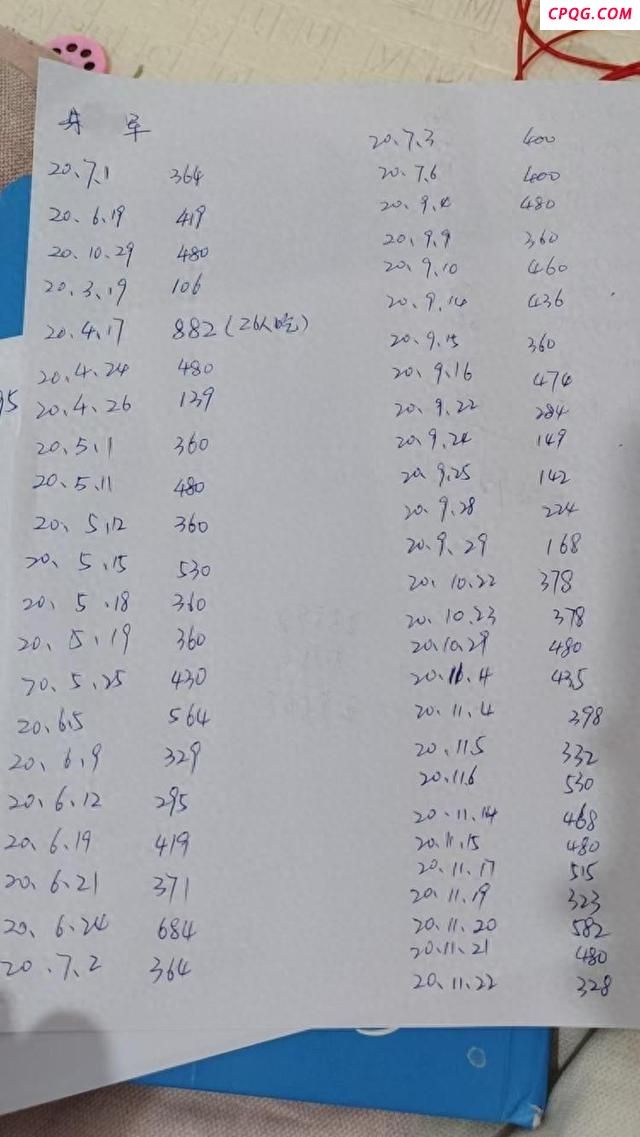 CPQG.COM
舟 军
20.7.1 364
20.6.19 419
20.10.29 480
20.3.19 106
20.4.17 882(26人吃)
20.4.24 480
20.4.26 139
20.5.1 360
20.5.11 480
20.5.12 360
20.5.15 530
20.5.18 360
20.5.19 360
20.5.25 430
20.6.5 564
20.6.9 329
20.6.12 295
20.6.19 419
20.6.21 371
20.6.24 684
20.7.2 364
20.7.3 400
20.7.6 400
20.9.4 480
20.9.9 360
20.9.10 460
20.9.14 436
20.9.15 360
20.9.16 474
20.9.22 284
20.9.24 149
20.9.25 142
20.9.28 224
20.9.29 168
20.10.22 378
20.10.23 378
20.10.29 480
20.11.4 435
20.11.4 398
20.11.5 332
20.11.6 530
20.11.14 468
20.11.15 480
20.11.17 515
20.11.19 323
20.11.20 582
20.11.21 480
20.11.22 328